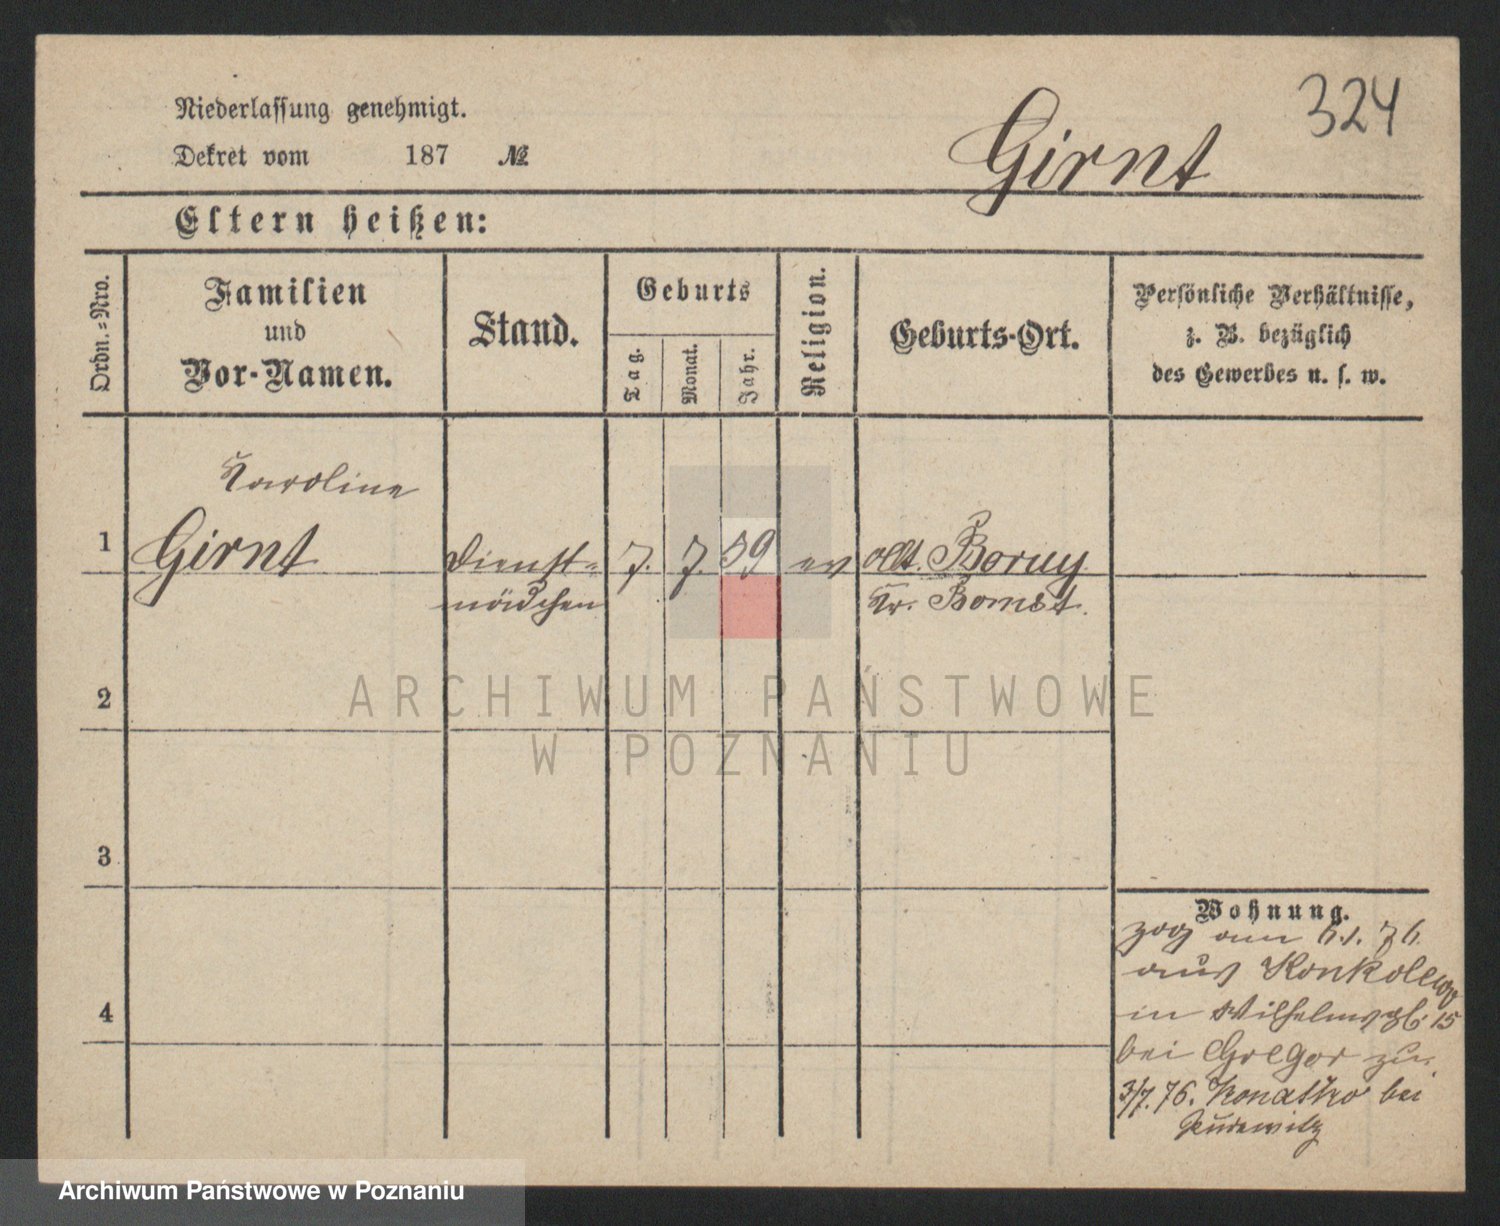 324
Niederlassung genehmigt.
Dekret vom 187 №
Girnt
Eltern heißen:
Ordn.-Nro.
Familien
und
Vor-Namen.
Stand.
Geburts
Tag.
Monat.
Jahr.
Religion.
Geburts-Ort.
Persönliche Verhältnisse,
z. B. bezüglich
des Gewerbes u. s. w.
Karoline
1 Girnt Dienst- 7. 7. 39 ev Alt. Boruy
mädchen Kr. Bomst.
2
3
4
Wohnung.
zog am 6.1. 76
aus Konkolewo
in Wilhelmspl. 15
bei Gregor zu.
3/7. 76. Konatko bei
Pudewitz
ARCHIWUM PAŃSTWOWE
W POZNANIU
Archiwum Państwowe w Poznaniu